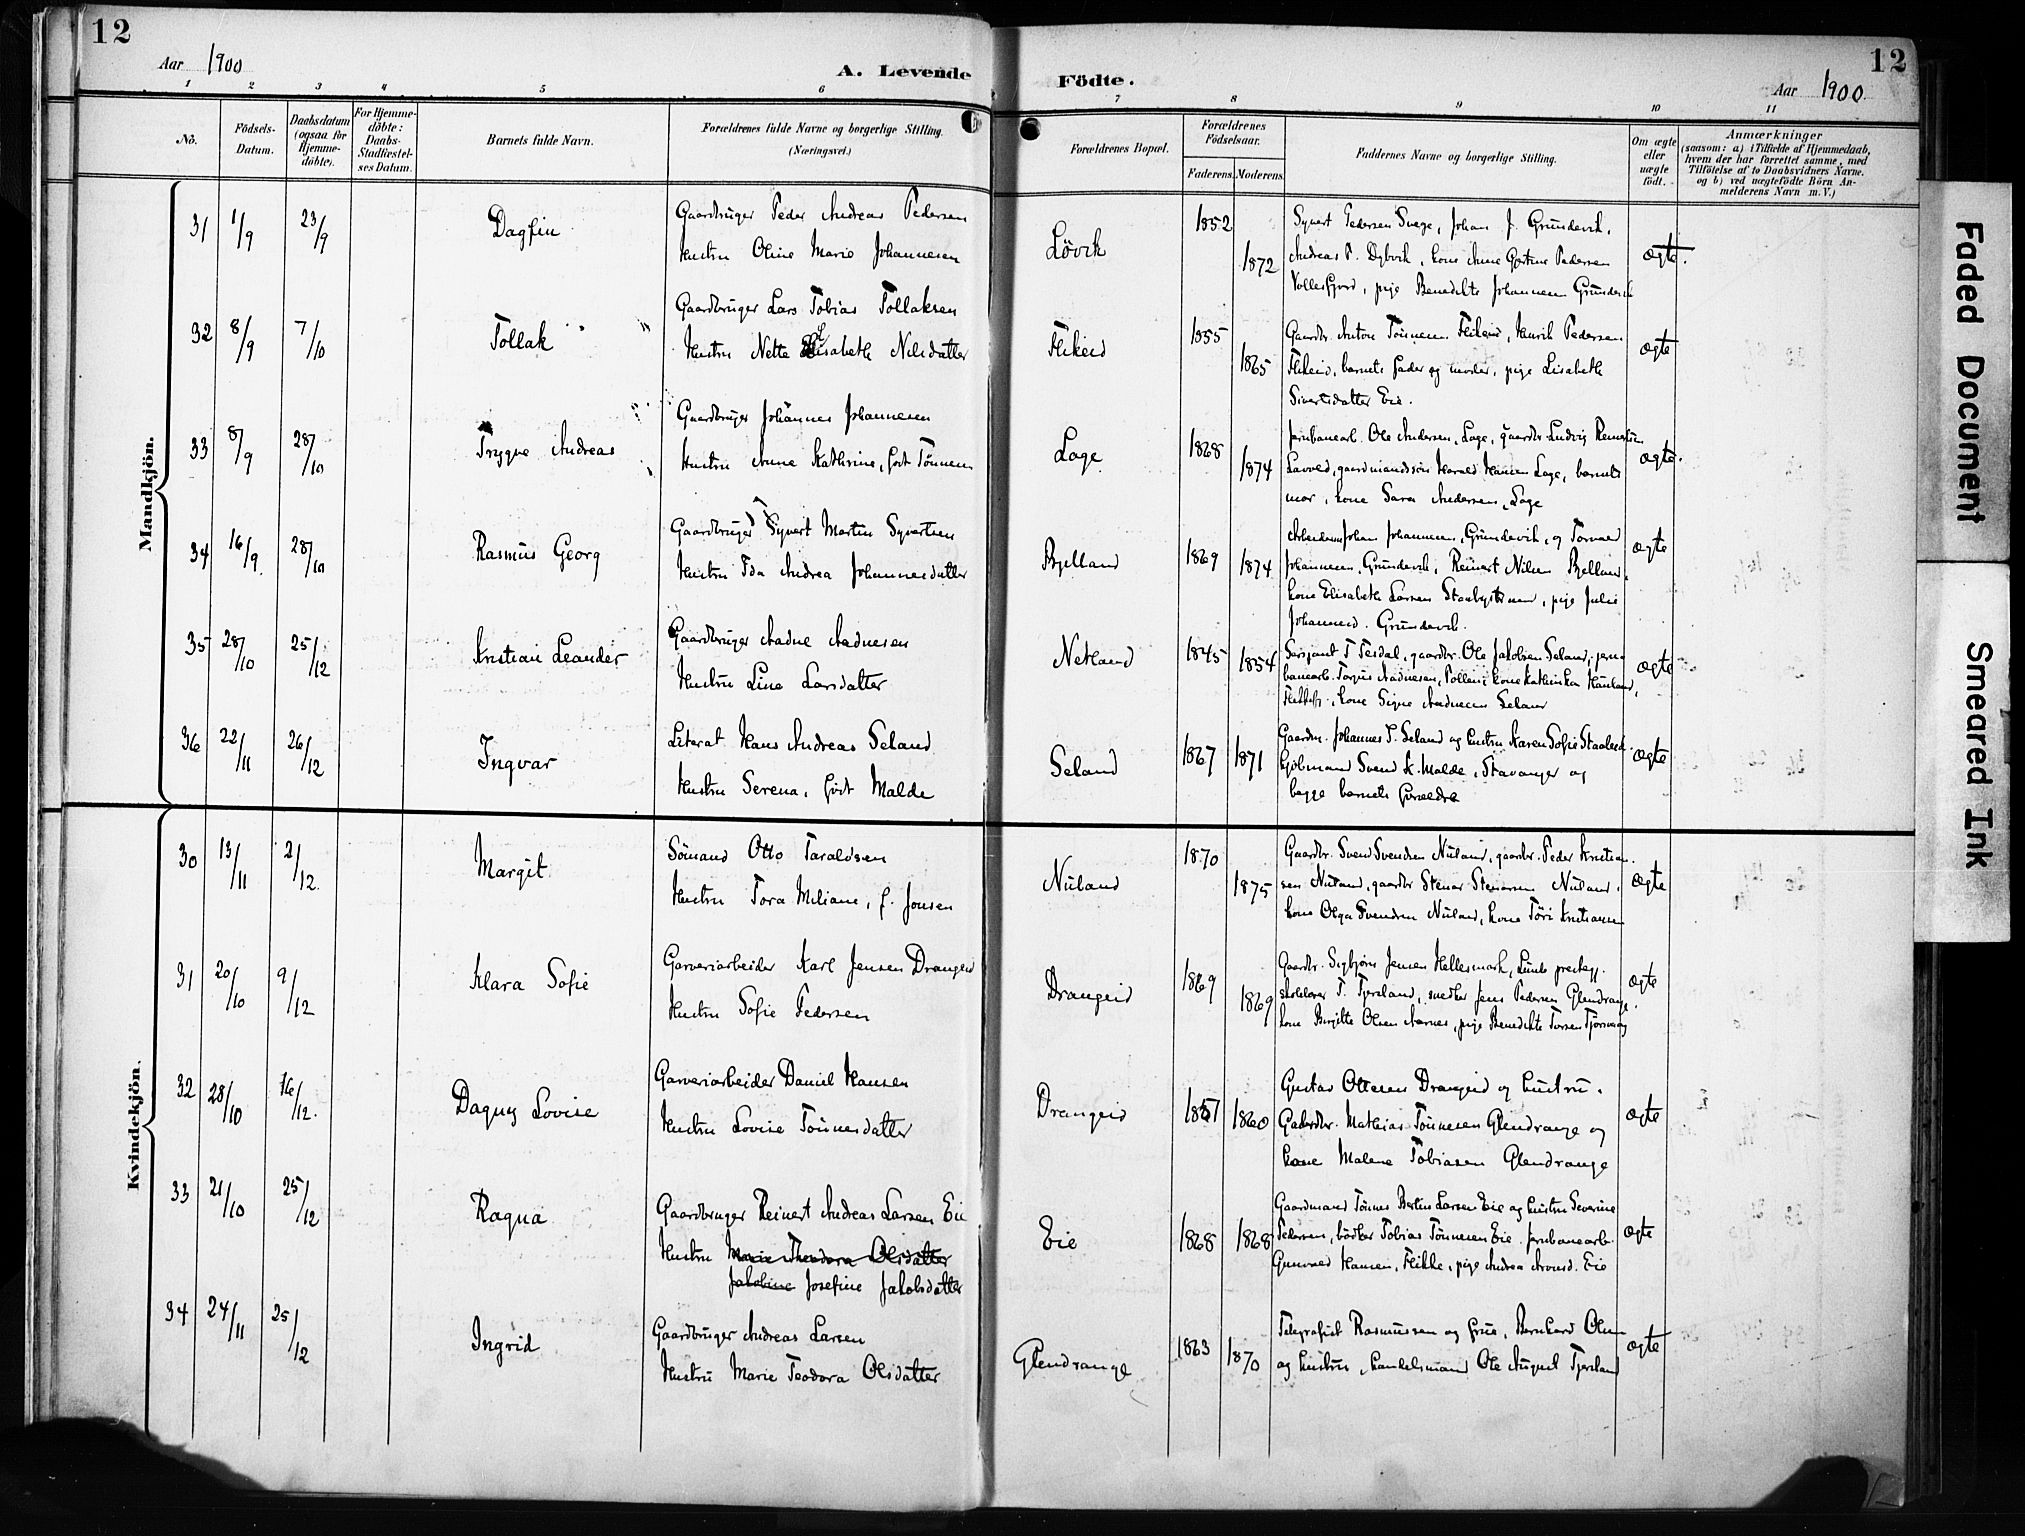 12
Aar 1900
A. Levende
Födte.
12
Aar 1900
1 2 3 4 5 6 7 8 9 10 11
No.
Födsels-
Datum.
Daabsdatum
(ogsaa for
Hjemme-
döbte).
For Hjemme-
döbte:
Daabs-
Stadfæstel-
ses Datum.
Barnets fulde Navn.
Forældrenes fulde Navne og borgerlige Stilling.
(Næringsvei.)
Forældrenes Bopæl.
Forældrenes
Födselsaar.
Faderens
Moderens
Faddernes Navne og borgerlige Stilling.
Om ægte
eller
uægte
født.
Anmærkninger
(saasom: a) i Tilfælde af Hjemmedaab,
hvem der har forrettet samme, med
Tilföielse af to Daabsvidners Navne.
og b) ved uægtefödte Börn An-
melderens Navn m. V.)
Mandkjön.
31 1/9 23/9 Dagfin
Gaardbruger Peder Andreas Pedersen
Hustru Oline Marie Johannesen
Lövik 1852 1872
Syvert Pedersen Svege, Johan J. Grundevik,
Andreas P. Dybvik, kone Anne Gurine Pedersen
pige Benedikte Johannesen Grundevik
ægte.
32 8/9 7/10 Tollak
Gaardbruger Lars Tobias Tollaksen
Hustru Nette Elisabeth Nilsdatter
Flikeid 1855 1865
Gaardbr. Anton Tönnesen Flikeid, Henrik Pedersen
Flikeid, barnets fader og moder, pige Lisabeth
Sivertsdatter Eie.
ægte
33 8/9 28/10 Trygve Andreas
Gaardbruger Johannes Johannesen
Hustru Anne Kathrine, født Tönnesen
Loge 1868 1874
Jernbanearb. Ole Andersen, Loge, gaardbr. Ludvig
gaardmandssön Harald Hansen Loge, barnets
mor, kone Sara Andersen, Loge
ægte.
34 16/9 28/10 Rasmus Georg
Gaardbruger Syvert Martin Syvertsen
Hustru Ida Andrea Johannesdatter
Bjelland 1869 1874
Johan Johannesen, Grundevik, og
Johannesen, Grundevik, Reinert Nilsen Bjelland,
kone Elisabeth Larsen pige Julie
Grundevik.
ægte
35 28/10 25/12 Kristian Leander
Gaardbruger Aadne Aadnesen
Hustru Line Larsdatter
Netland 1845 1854
Sersjant T. Tesdal, gaardbr. Ole Jakobsen Seland, jern-
banearb. Torjus Aadnesen, kone Kathinka
kone Signe Aadnesen Seland
ægte
36 22/11 26/12 Ingvar
Literat Hans Andreas Seland
Hustru Serena, født Malde
Seland 1867 1871
Gaardm. Johannes T. Seland og hustru Karen Sofie
Svend K. Malde, Stavanger og
begge barnets forældre
ægte
Kvindekjön.
30 13/11 2/12 Margit
Sömand Otto Taraldsen
Hustru Tora Miliane, f. Jonsen
Nuland 1870 1875
Gaardbr. Svend Svendsen Nuland, gaardbr. Peder Kristian-
sen Nuland, gaardbr Stenar Stenarsen Nuland,
kone Olga Svendsen Nuland, kone Töri Kristiansen
ægte
31 20/10 9/12 Klara Sofie
Garveriarbeider Karl Jensen Drangeid
Hustru Sofie Pedersen
Drangeid 1869 1869
Gaardbr. Sigbjörn Jensen Hellesmark, Lunds prestegj.
skolelærer T. Tjersland, snedker Jens Pedersen Glendrange,
kone Birgitte Olsen Aarnes, pige Benedikte Torsen
ægte
32 28/10 16/12 Dagny Lovise
Garveriarbeider Daniel Hansen
Hustru Lovise Tönnesdatter
Drangeid 1857 1860
Gustav Ottesen Drangeid og hustru.
Gaardbr. Mathias Tönnesen Glendrange og
kone Malene Tobiasen Glendrange
ægte
33 21/10 25/12 Ragna
Gaardbruger Reinert Andreas Larsen Eie
Hustru Marie Theodora Olsdatter
Jakobine Josefine Jakobsdatter
Eie 1868 1868
Gaardmand Tönnes Bertin Larsen Eie og hustru Severine
Pedersen, bödker Tobias Tönnesen Eie. jernbanearb.
Gunvald Hansen, Flikke, pige Andrea Eie
ægte
34 24/11 25/12 Ingrid
Gaardbruger Andreas Larsen
Hustru Marie Teodora Olsdatter
Glendrange 1863 1870
Telegrafist Rasmussen og frue, Bernhard Olsen
og hustru, handelsmand Ole August Tjersland
ægte
Faded Document
Smeared Ink